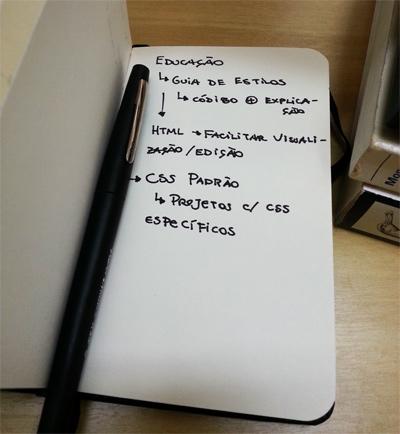 EDUCAÇÃO
↳ GUIA DE ESTILOS
↳ CÓDIGO ⊕ EXPLICA-
ÇÃO
HTML → FACILITAR VISUALI-
ZAÇÃO/EDIÇÃO
→ CSS PADRÃO
↳ PROJETOS C/ CSS
ESPECÍFICOS